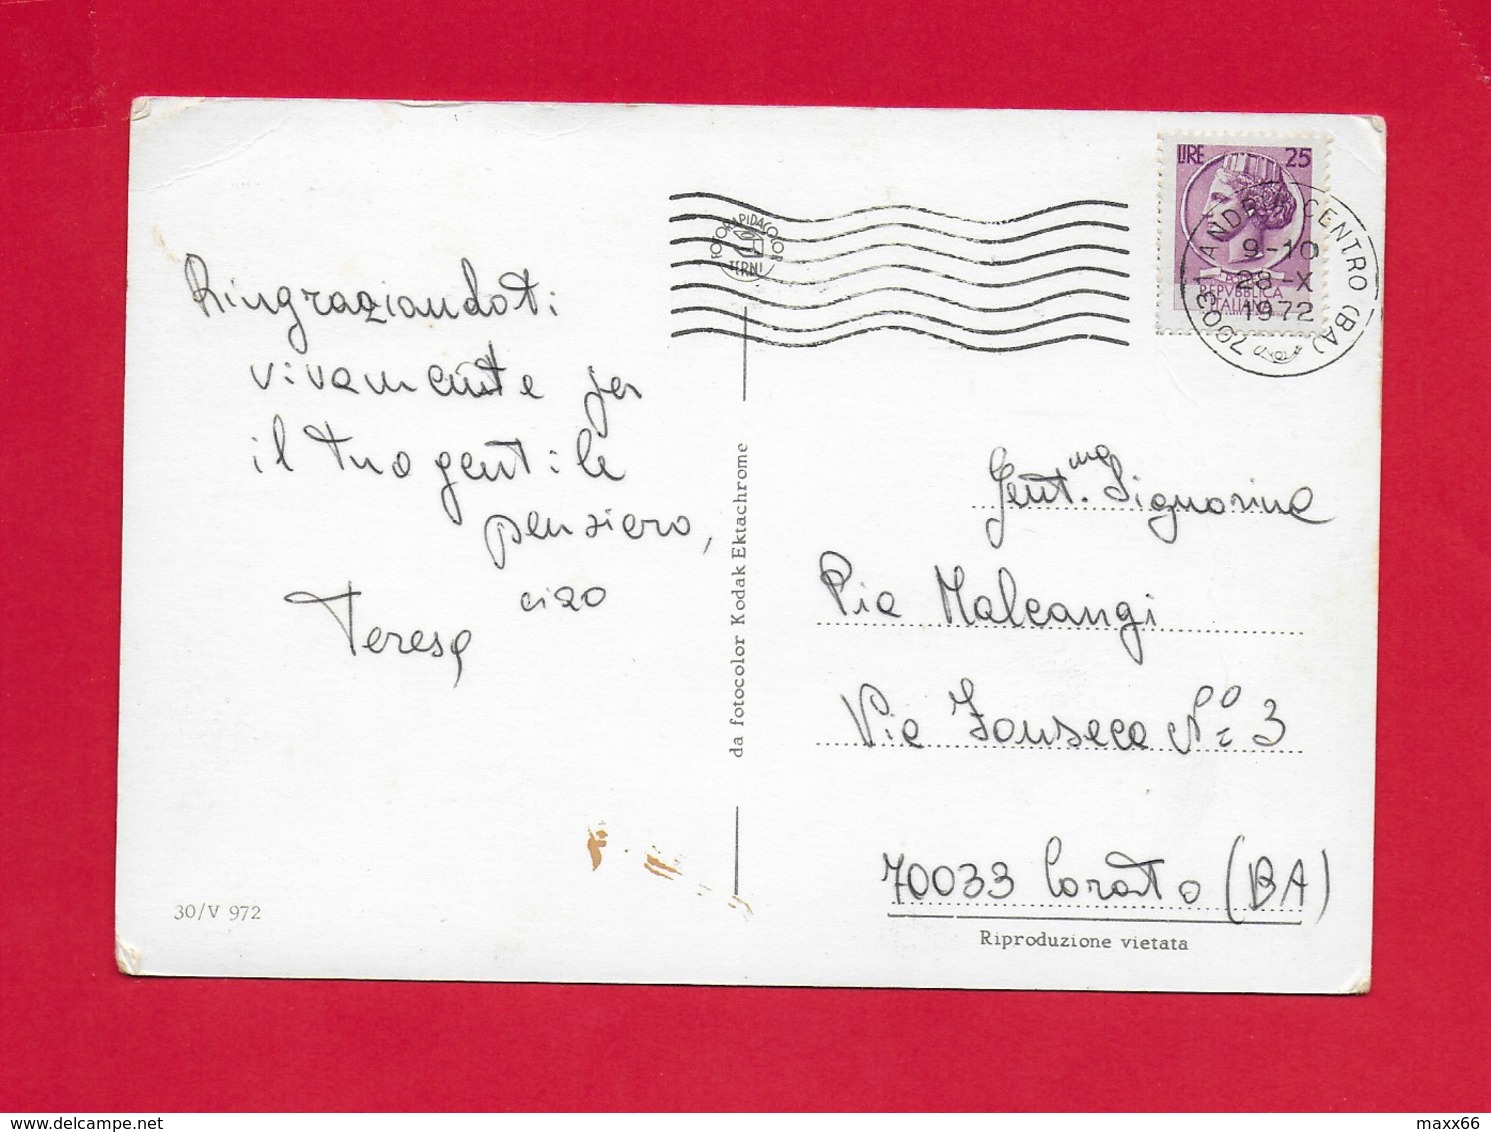 Ringraziandoti
vivamente per
il tuo gentile
pensiero,
ciao
Teresa
30/V 972
da fotocolor Kodak Ektachrome
FOTORAPIDACOLOR
TERNI
LIRE 25
REPVBBLICA
ITALIANA
70031 ANDRIA CENTRO (BA)
9-10
28-X
1972
Gent.ma Signorina
Pia Malcangi
Via Fonseca N° 3
70033 Corato (BA)
Riproduzione vietata
maxx66